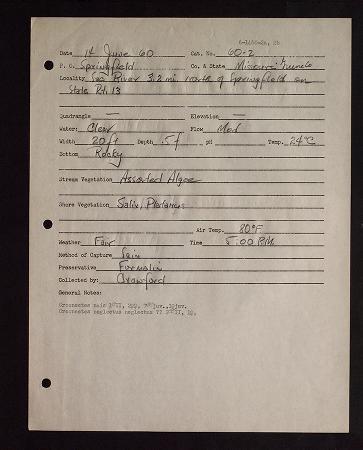 Date 14 June 60 Cat. No. 60-2
P. O. Springfield Co. & State Missouri Greene
Locality Sac River 3.2 mi. north of Springfield on
State Rt. 13
Quadrangle — Elevation —
Water: Clear Flow Mod
Width 20 ft Depth .5 f pH Temp. 24°C
Bottom Rocky
Stream Vegetation Assorted Algae
Shore Vegetation Salix, Platanus
Air Temp. 80°F
Weather Fair Time 5:00 P.M.
Method of Capture Sein
Preservative Formalin
Collected by: Crawford
General Notes:
Orconectes
Orconectes neglectus neglectus